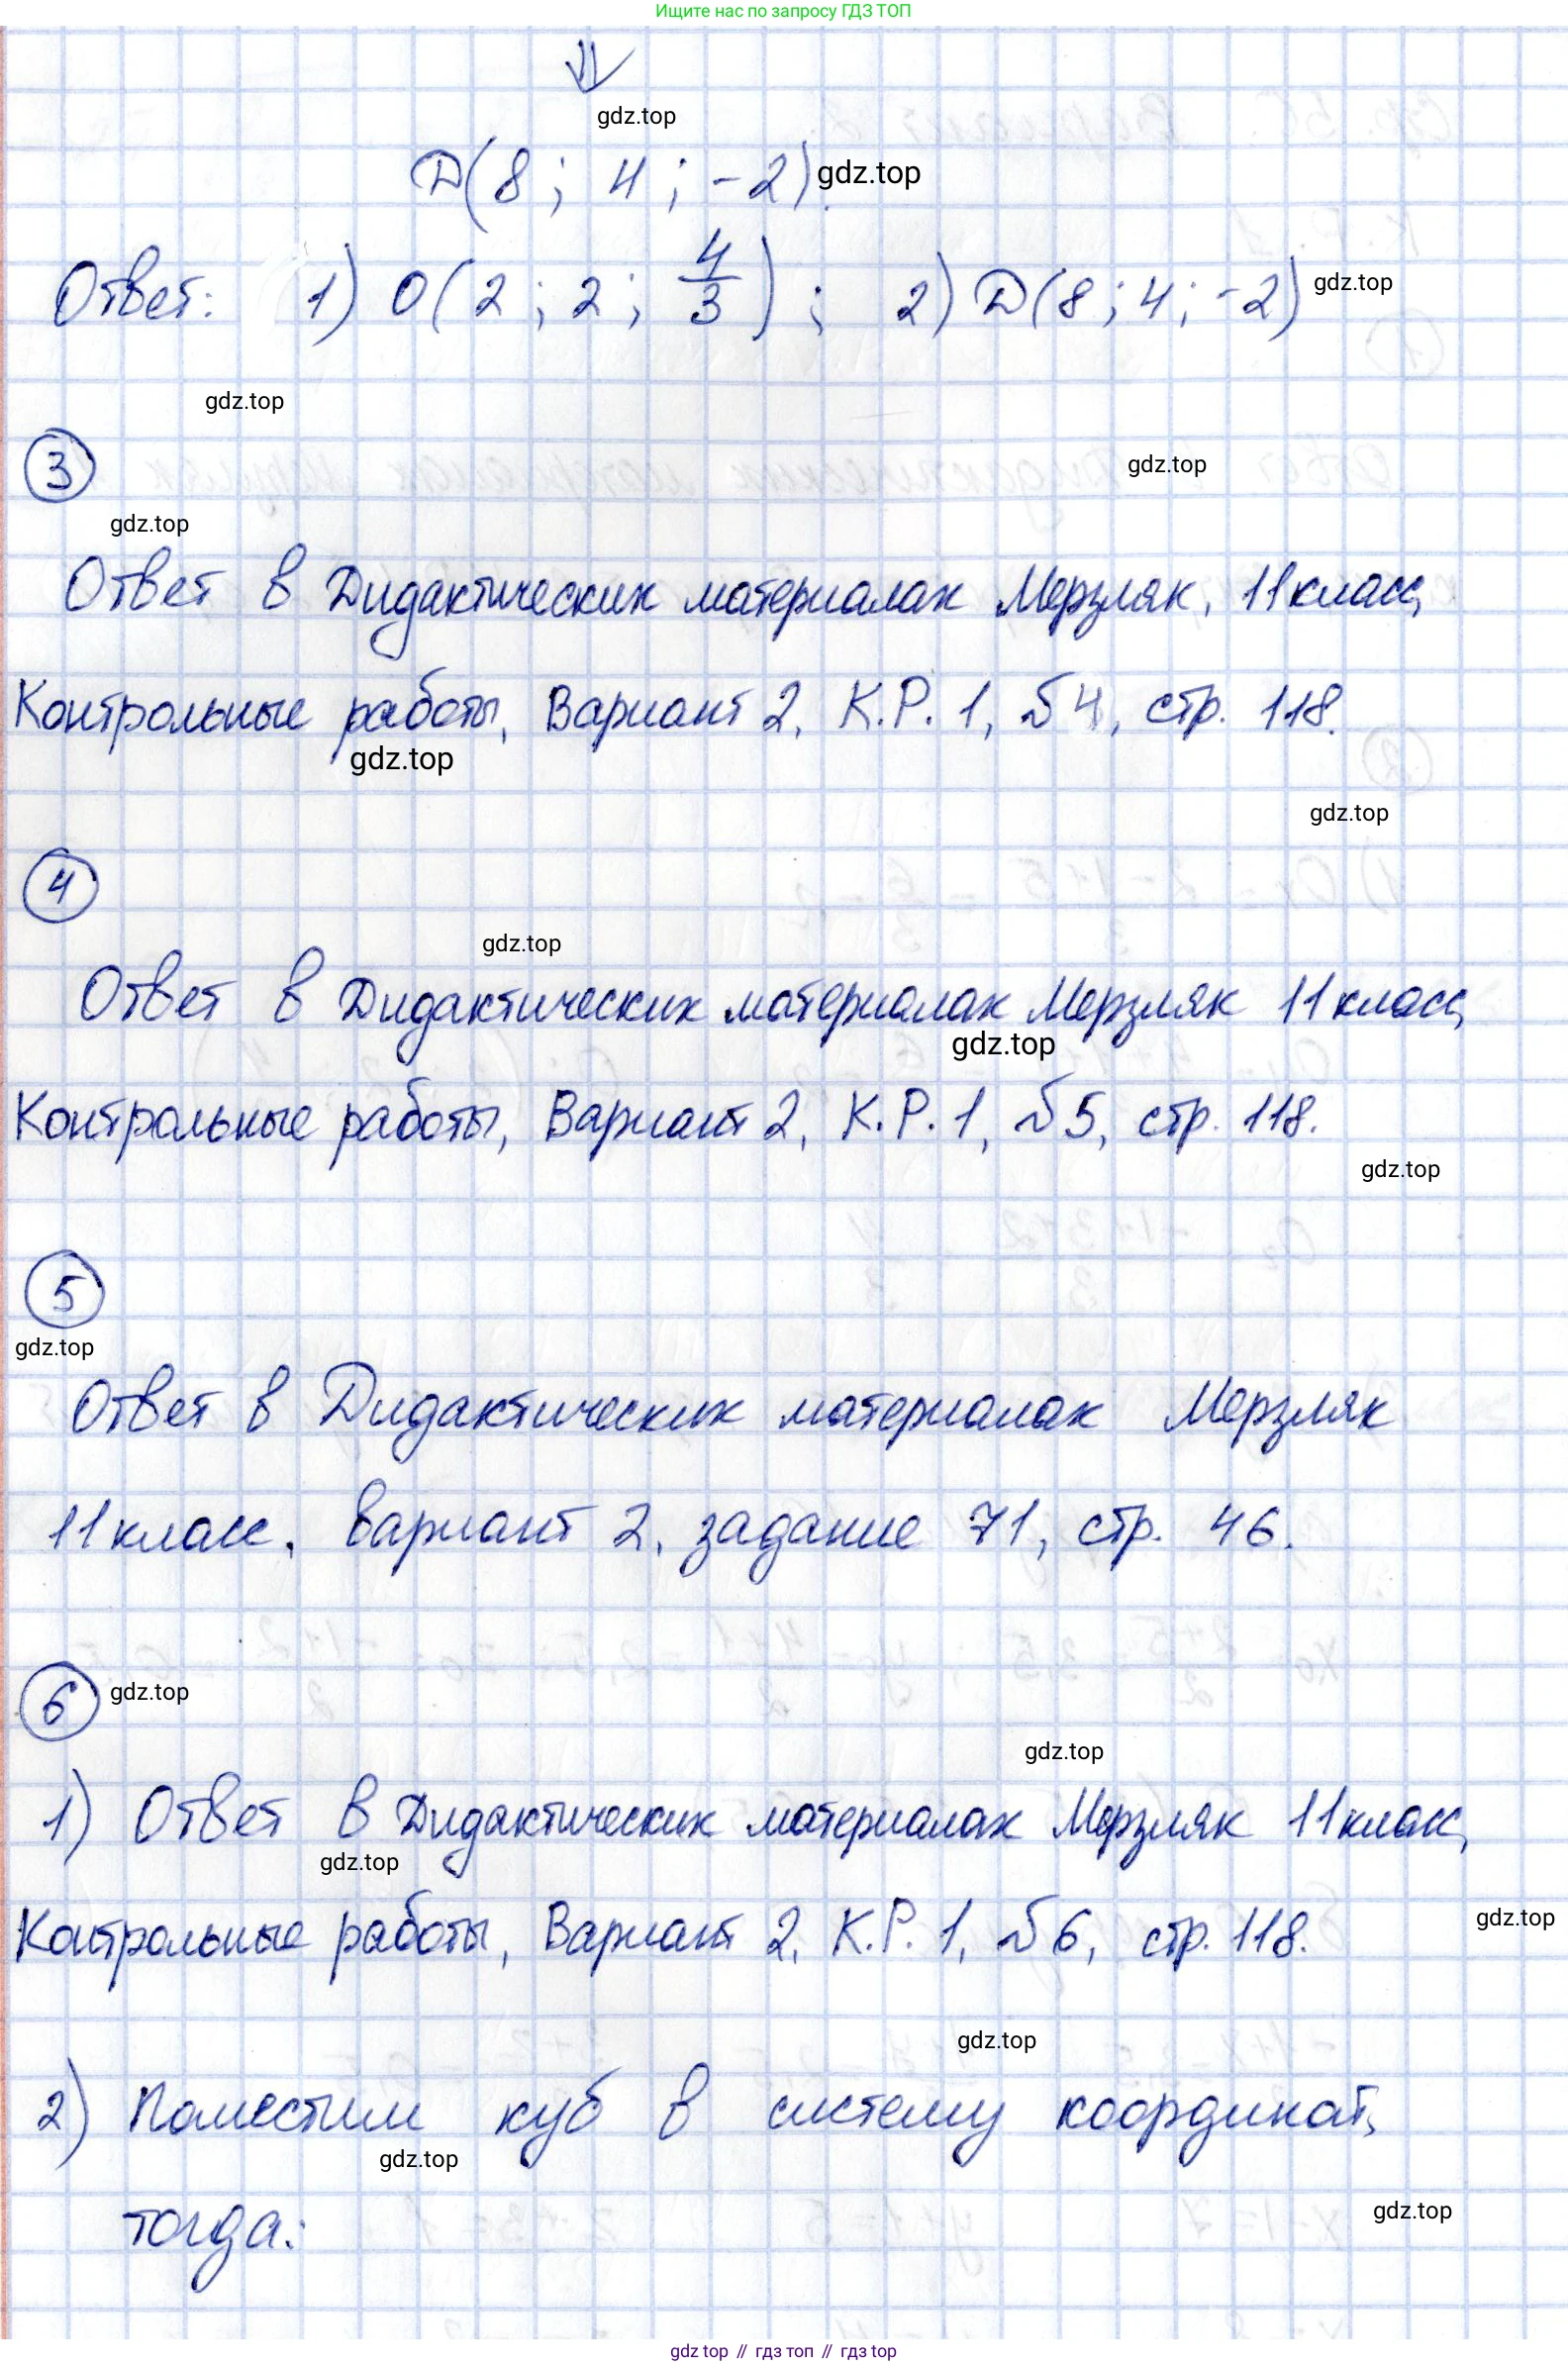 Ищите нас по запросу ГДЗ ТОП
⇓
gdz.top
D(8; 4; -2). gdz.top
Ответ: 1) O(2; 2; 4/3); 2) D(8; 4; -2) gdz.top
gdz.top
3
gdz.top
gdz.top
Ответ в Дидактических материалах Мерзляк, 11 класс,
Контрольные работы, Вариант 2, К.Р. 1, №4, стр. 118.
gdz.top
gdz.top
4
gdz.top
Ответ в Дидактических материалах Мерзляк 11 класс,
gdz.top
Контрольные работы, Вариант 2, К.Р. 1, №5, стр. 118.
gdz.top
5
gdz.top
Ответ в Дидактических материалах Мерзляк
11 класс, вариант 2, задание 71, стр. 46.
6 gdz.top
gdz.top
1) Ответ в Дидактических материалах Мерзляк 11 класс,
gdz.top
Контрольные работы, Вариант 2, К.Р. 1, №6, стр. 118.
gdz.top
gdz.top
2) Поместим куб в систему координат,
gdz.top
тогда:
gdz.top
gdz top // гдз топ // гдз top